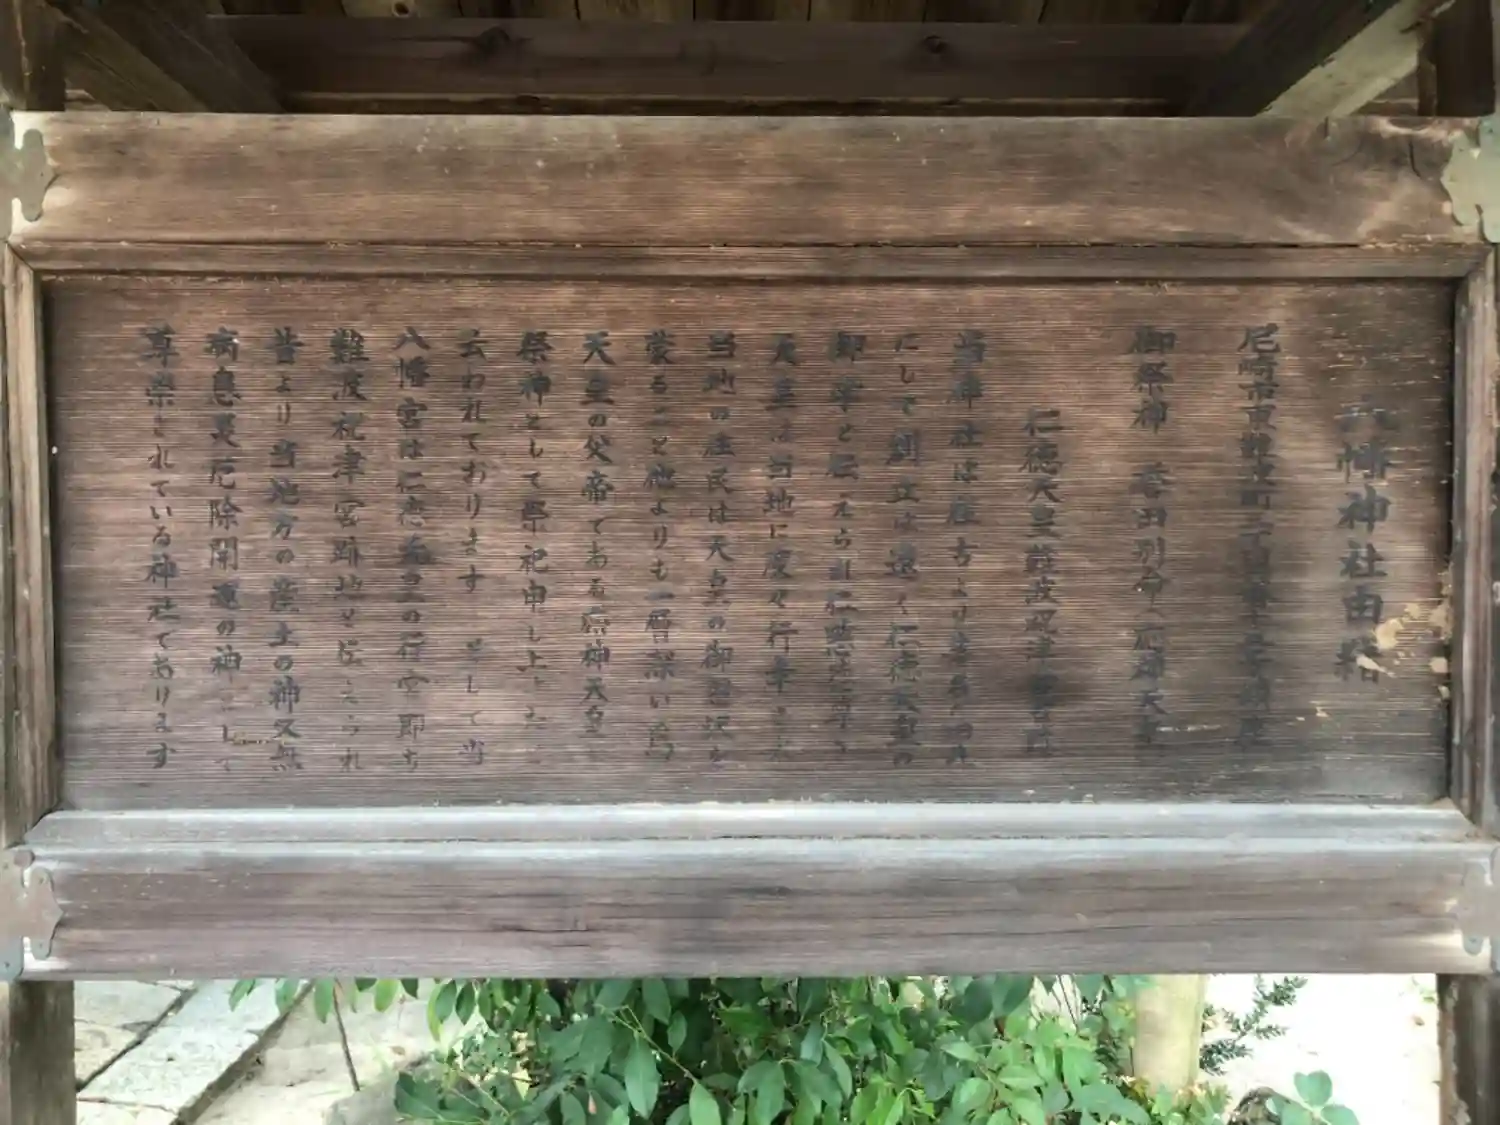 八幡神社由緒
尼崎市東難波町二丁目
御祭神 誉田別命 応神天皇
仁徳天皇難波祝津宮
当神社は往古より
にして創立は遠く仁徳天皇の
御宇と伝えられ仁慈
天皇は当地に度々行幸
当地の住民は天皇の御恩沢を
蒙ること他よりも一層深い為
天皇の父帝である応神天皇
祭神として祭祀申し上
云われております そして当
八幡宮は仁徳天皇の行宮即ち
難波祝津宮跡地と伝えられ
昔より当地方の産土の神又無
病息災厄除開運の神として
尊崇されている神社であります